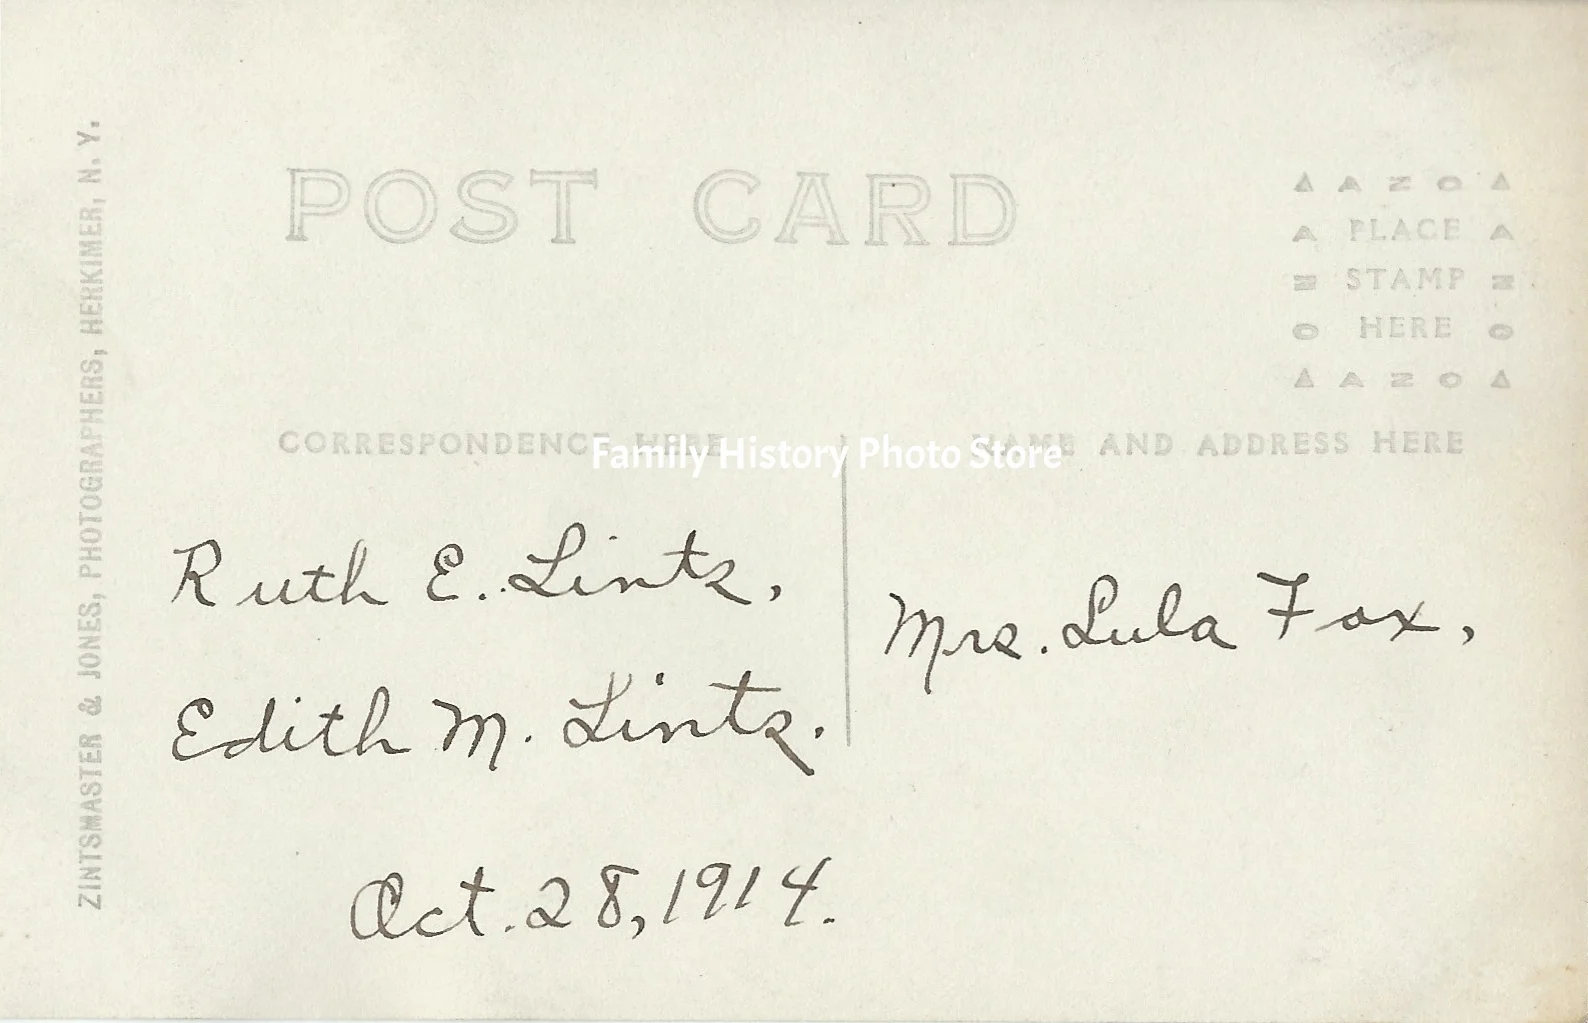 POST CARD
▲ A Z O ▲
A PLACE A
Z STAMP Z
O HERE O
▲ A Z O ▲
CORRESPONDENCE HERE
NAME AND ADDRESS HERE
Family History Photo Store
Ruth E. Lintz,
Edith M. Lintz.
Oct. 28, 1914.
Mrs. Lula Fox,
ZINTSMASTER & JONES, PHOTOGRAPHERS, HERKIMER, N. Y.